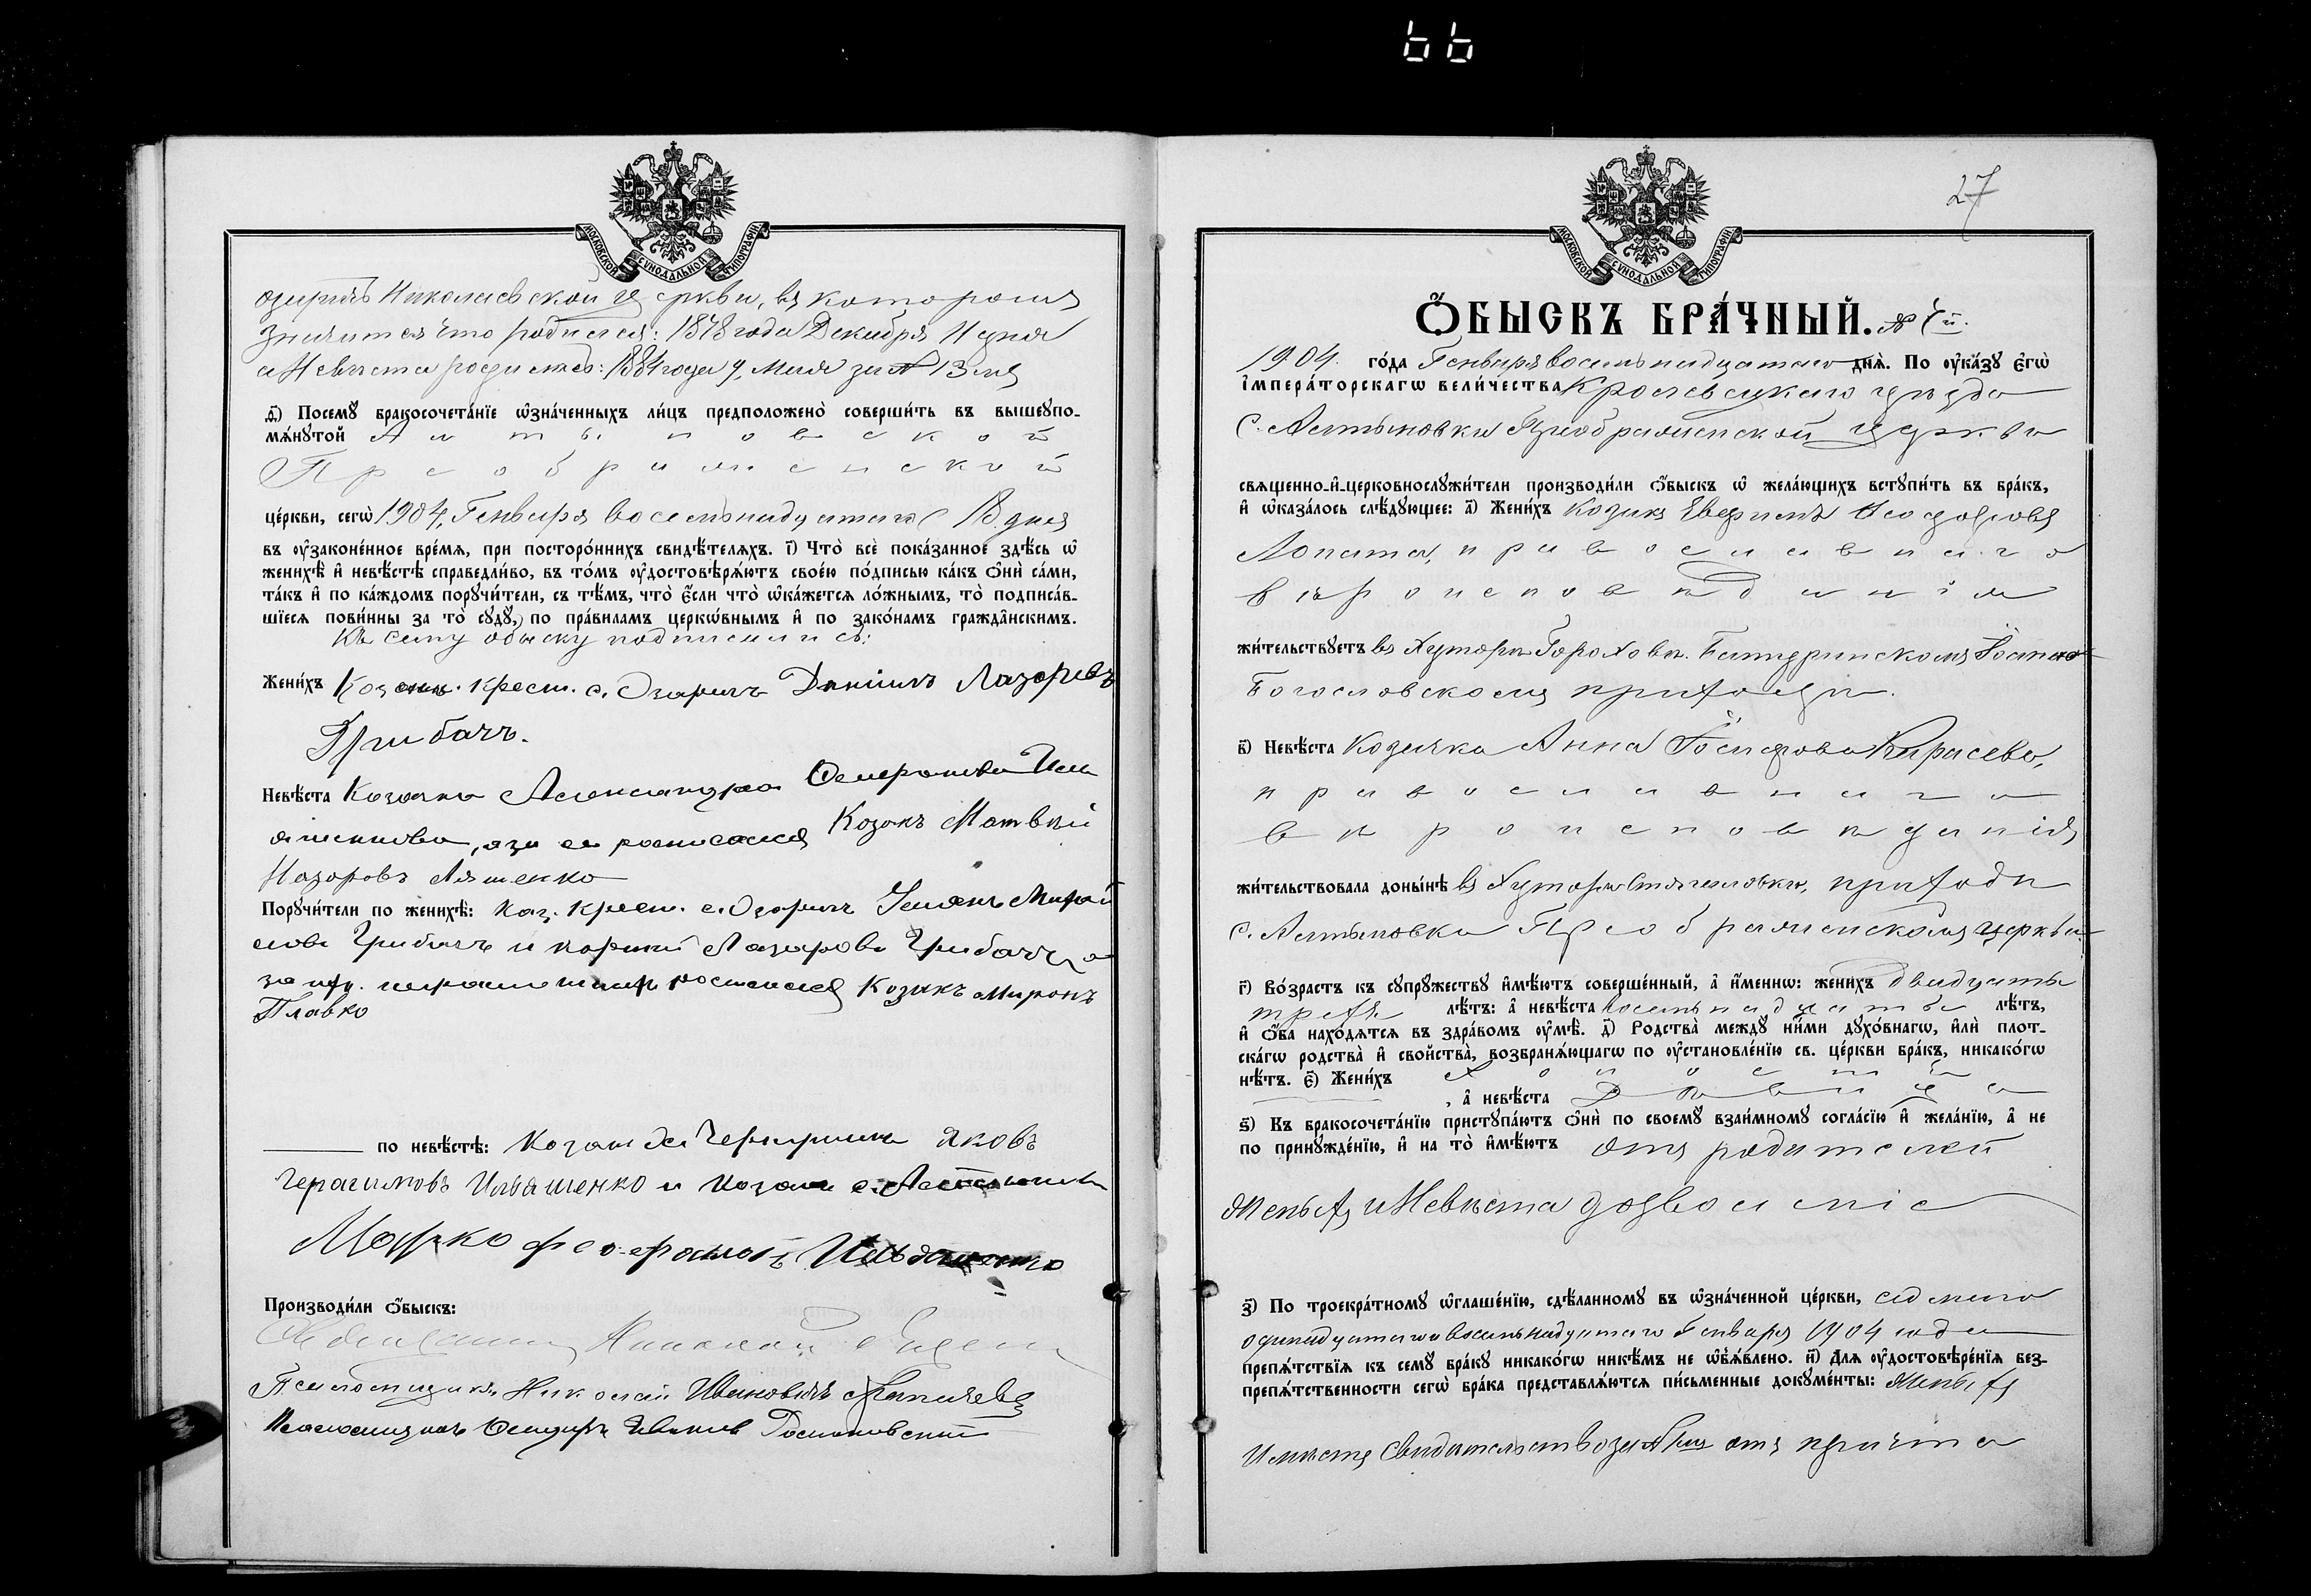 66
МОСКОВСКОЙ СѴНОДАЛЬНОЙ ТИПОГРАФІИ
Николаевской церкви, въ которомъ
значится что родился: 1878 года Декабря 11 дня
а Невѣста родилась: 1884 года 9, Мая за № 13 мъ
ѳ҃) Посемꙋ̀ бракосочета́нїе ѡ҆зна́ченныхъ ли́цъ предположено̀ соверши́ть въ вышеꙋпо-
мѧ́нꙋтой Алтыновской
Преображенской
це́ркви, сегѡ̀ 1904, Генваря восемьнадцатаго 18 дня
въ ᲂу҆зако́нённое вре́мѧ, при посторо́ннихъ свидѣ́телѧхъ. і҃) Что̀ всѐ пока́занное здѣ́сь ѡ҆
женихѣ̀ и҆ невѣ́стѣ справедли́во, въ то́мъ ᲂу҆достовѣрѧ́ютъ свое́ю по́дписью ка́къ ѻ҆нѝ са́ми,
та́къ и҆ по ка́ждомъ порꙋчи́тели, съ тѣ́мъ, что̀ є҆́сли что̀ ѡ҆ка́жетсѧ ло́жнымъ, то̀ подписа́в-
шїесѧ пови́нны за то̀ сꙋдꙋ̀, по пра́виламъ церкѡ́внымъ и҆ по зако́намъ гражда̂нскимъ.
Къ сему обыску подписались:
Жени́хъ Козен. крест. с. Озаричъ Данiилъ Лазоревъ
Грибачъ.
Невѣ́ста Козачка Александра
, а за ея росписался Козакъ Матвѣй
Назоровъ Ляшенко
Порꙋчи́тели по женихѣ̀: Каз. крест. с. Озаричъ
Грибачъ и Лазарова Грибачъ, а
за Козакъ Миронъ
Плавко
по невѣ́стѣ: Яковъ
Герасимовъ Ильяшенко и Козакъ с. Алтыновки
Марко Ильяшенко
Производи́ли ѻ҆́быскъ:
Николай
Псаломщикъ Николай Ивановичъ
Псаломщикъ
27
МОСКОВСКОЙ СѴНОДАЛЬНОЙ ТИПОГРАФІИ
Ѻ҆́БЫСКЪ БРА́ЧНЫЙ. № 7й.
1904. го́да Генваря восемьнадцатаго днѧ̀. По ᲂу҆ка́зꙋ є҆гѡ̀
і҆мпера́торскагѡ вели́чества Кролевецкаго уѣзда
с. Алтыновки Преображенской церкви
свѧщенно-и҆-церковнослꙋжи́тели производи́ли ѻ҆́быскъ ѡ҆ жела́ющихъ встꙋпи́ть въ бра́къ,
и҆ ѡ҆каза́лось слѣ́дꙋющее: а҃) Жени́хъ Козакъ Евфимъ Ѳеодоровъ
Лопата, православнаго
вѣроисповѣданія
жи́тельствꙋетъ въ Хуторѣ Гороховѣ. Батуринскомъ Іоанно-
Богословскомъ приходѣ.
в҃) Невѣ́ста Козачка Анна Іосифова Карасева,
православнаго
вѣроисповѣданія
жи́тельствовала доны́нѣ въ Хуторѣ прихода
с. Алтыновки Преображенскомъ церкви.
г҃) Во́зрастъ къ сꙋпрꙋ́жествꙋ и҆мѣ́ютъ соверше́нный, а҆ и҆́меннѡ: жени́хъ двадцать
трехъ лѣ́тъ: а҆ невѣ́ста восемьнадцать лѣ́тъ,
и҆ ѻ҆́ба нахо́дѧтсѧ въ здра́вомъ ᲂу҆мѣ̀. д҃) Родства̀ междꙋ̀ ни́ми дꙋхо́внагѡ, и҆лѝ плот-
ска́гѡ родства̀ и҆ сво́йства̀, возбранѧ́ющагѡ по ᲂу҆становле́нїю св. це́ркви бра́къ, никако́гѡ
нѣ́тъ. є҃) Жени́хъ Холостъ
, а҆ невѣ́ста Дѣвица
ѕ҃) Къ бракосочета́нїю пристꙋпа́ютъ ѻ҆нѝ по своемꙋ̀ взаи́мномꙋ согла́сїю и҆ жела́нїю, а҆ не
по принꙋжде́нїю, и҆ на то̀ и҆мѣ́ютъ отъ родителей
Женихъ и Невѣста дозволеніе
з҃) По троекра́тномꙋ ѡ҆глаше́нїю, сдѣ́ланномꙋ въ ѡ҆зна́ченной це́ркви, седмаго
одинадцатаго восемьнадцатаго Генваря 1904 года
препѧ́тствїѧ къ семꙋ̀ бра́кꙋ никако́гѡ никѣ́мъ не ѡ҆б̾ѧ́влено. и҃) Для ᲂу҆достовѣре́нїѧ без-
препѧ́тственности сегѡ̀ бра́ка представлѧ́ютсѧ пи́сьменные докꙋме́нты: Женихъ
имѣетъ свидѣтельство за № отъ причта